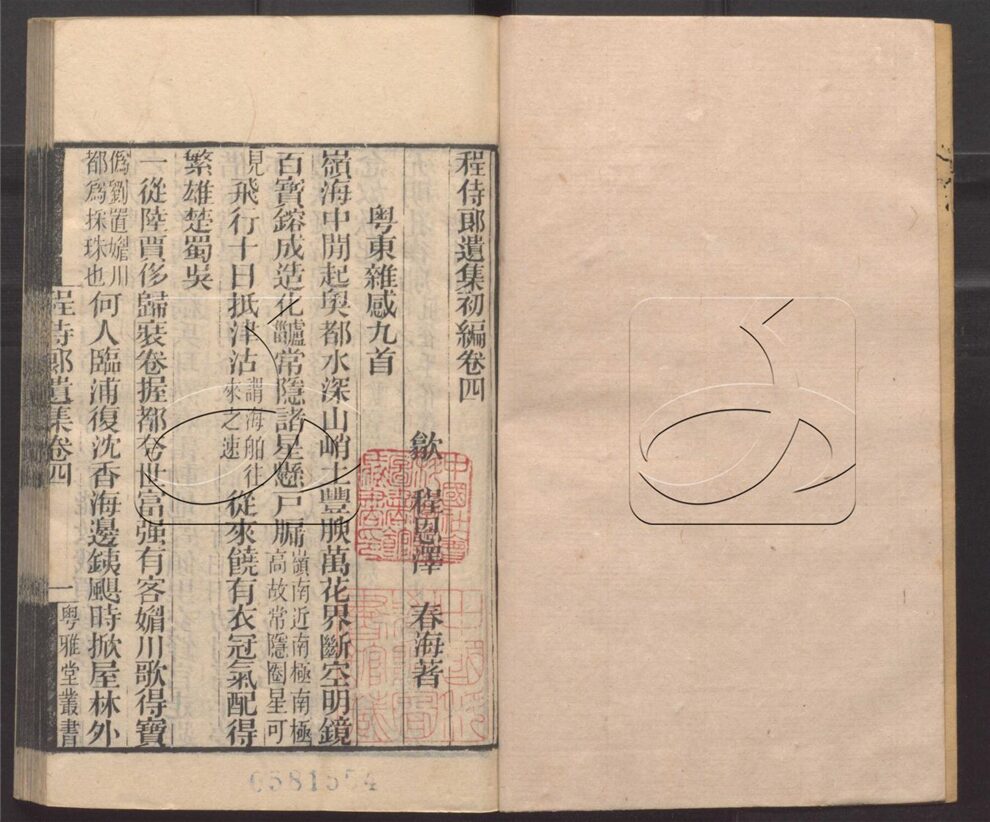 程侍郎遺集初編卷四
歙 程恩澤 春海著
粤東雜感九首
嶺海中開起奥都水深山峭土豐腴萬花界斷空明鏡
百寶鎔成造化鑪常隱諸星懸戸牖嶺南近南極南極高故常隱圈星可
見飛行十日抵津沽謂海舶往來之速從來饒有衣冠氣配得
繁雄楚蜀吳
一從陸賈侈歸裝卷握都夸世富强有客媚川歌得寶
僞劉置媚川都爲採珠也何人臨浦復沈香海邊銕颶時掀屋林外
程侍郎遺集卷四
一
粤雅堂叢書
0581554